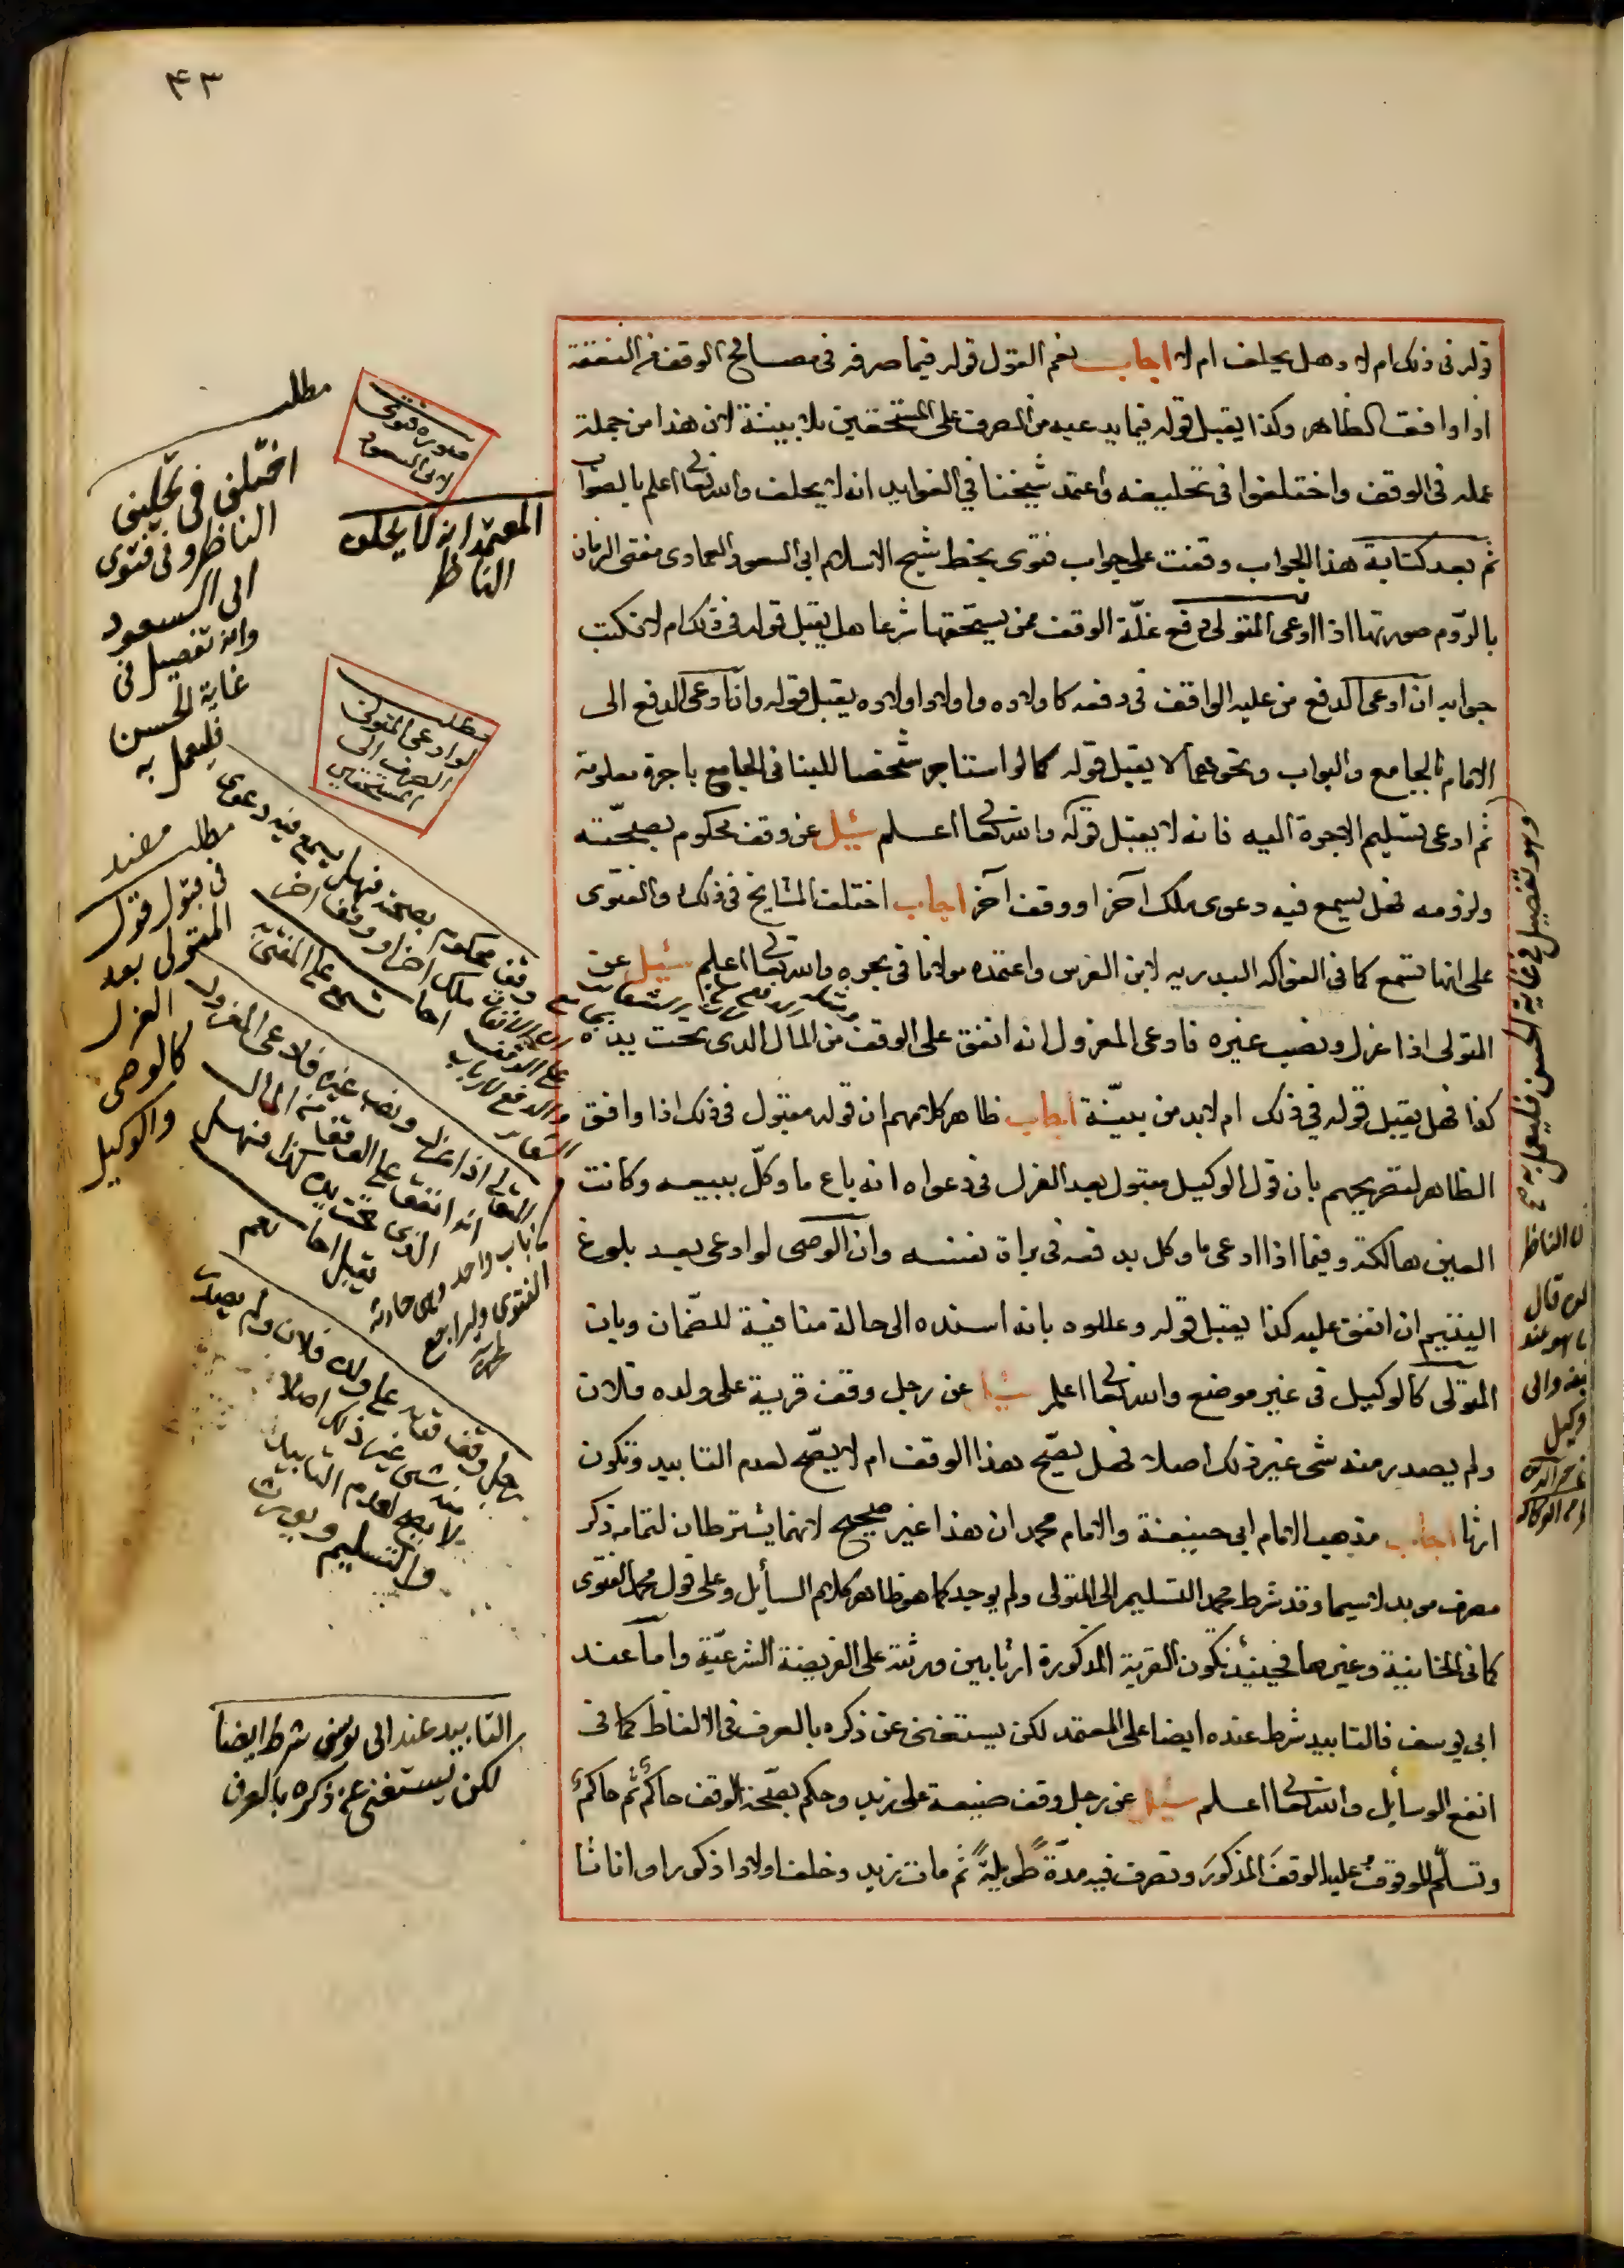 ٤٣
قوله في ذلك ام لا وهل يحلف ام لا اجاب نعم القول قوله فيما صرفه في مصالح الوقف من النفقة
اذا وافقت الظاهر وكذا يقبل قوله فيما يدعيه من الصرف على المستحقين بلا بينة لان هذا من جملة
عمله في الوقف واختلفوا في تحليفه واعتمد شيخنا في الفوايد انه لا يحلف والله تعالى اعلم بالصواب
ثم بعد كتابة هذا الجواب وقفت على جواب فتوى بخط شيخ الاسلام ابي السعود العمادي مفتي الزمان
بالروم صورتها اذا ادعى المتولي دفع غلة الوقف لمن يستحقها شرعا هل يقبل قوله في ذلك ام لا فكتب
جوابه ان ادعى الدفع من عليه الواقف في وقفه كاولاده واولاد اولاده يقبل قوله وان ادعى الدفع الى
الامام بالجامع والبواب ونحوهما لا يقبل قوله كما لو استاجر شخصا للبنا في الجامع باجرة معلومة
ثم ادعى تسليم الاجرة اليه فانه لا يقبل قوله والله تعالى اعلم سئل عن وقف محكوم بصحته
ولزومه فهل يسمع فيه دعوى ملك آخر او وقف آخر اجاب اختلف المشايخ في ذلك والفتوى
على انها تسمع كما في الفواكه البدريه لابن الغرس واعتمده مولانا في بحره والله تعالى اعلم سئل عن
المتولي اذا عزل ونصب غيره فادعى المعزول انه انفق على الوقف من المال الذي تحت يده
كذا فهل يقبل قوله في ذلك ام لا بد من بينة اجاب ظاهر كلامهم ان قوله مقبول في ذلك اذا وافق
الظاهر لتصريحهم بان قول الوكيل مقبول بعد العزل في دعواه انه باع ما وكل ببيعه وكانت
العين هالكة وفيما اذا ادعى ما وكل بدفعه في براة نفسه وان الوصي لو ادعى بعد بلوغ
اليتيم ان انفق عليه كذا يقبل قوله وعللوه بانه اسنده الى حالة منافية للضمان وبان
المتولي كالوكيل في غير موضع والله تعالى اعلم سئل عن رجل وقف قرية على ولده فلان
ولم يصدر منه شي غير ذلك اصلا فهل يصح هذا الوقف ام لا يصح لعدم التابيد وتكون
ارثا اجاب مذهب الامام ابي حنيفة والامام محمد ان هذا غير صحيح لانهما يشترطان لتمامه ذكر
مصرف موبد لاسيما وقد شرط محمد التسليم الى المتولي ولم يوجد كما هو ظاهر كلام السائل وعلى قول محمد الفتوى
كما في الخانية وغيرها فحينئذ تكون القرية المذكورة ارثا بين ورثته على الفريضة الشرعية واما عند
ابي يوسف فالتابيد شرط عنده ايضا على المعتمد لكن يستغنى عن ذكره بالعرف في الالفاظ كما في
انفع الوسايل والله تعالى اعلم سئل عن رجل وقف ضيعة على زيد وحكم بصحة الوقف حاكم ثم حاكم
وتسلم الموقوف عليه الوقف المذكور وتصرف فيه مدة طويلة ثم مات زيد وخلف اولادا ذكورا واناثا
مطلب
اختلف في تحليف
الناظر وفي فتوى
ابي السعود
وانه تفصيل في
غاية الحسن
فليعمل به
صورة فتوى
لابي السعود
المعتمد انه لا يحلف
الناظر
مطلب
لو ادعى المتولي
الصرف الى
المستحقين
مطلب مفيد
في قبول قول
المتولي بعد
العزل
كالوصي
والوكيل
وقف محكوم بصحته فهل يسمع فيه دعوى
ملك اخر او وقف اخر
تسمع على المفتى به
المتولي اذا عزل ونصب غيره فادعى المعزول
انه انفق على الوقف من المال
الذي تحت يده كذا فهل
يقبل اجاب نعم
رجل وقف قرية على ولده فلان ولم يصدر
منه شي غير ذلك اصلا
لا يصح لعدم التابيد
والتسليم ويورث
التابيد عند ابي يوسف شرط ايضا
لكن يستغنى عن ذكره بالعرف
وهو تفصيل في غاية الحسن فليعمل به